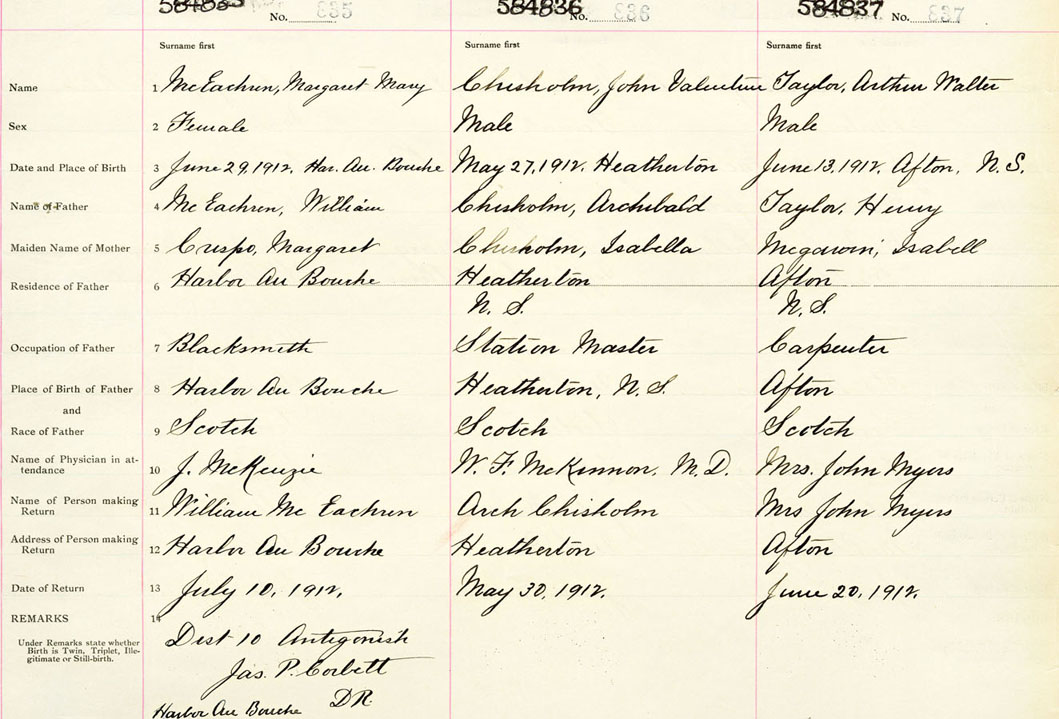 584835 584836 584837
No. 835 No. 836 No. 837
Surname first Surname first Surname first
Name 1 McEachren, Margaret Mary Chisholm, John Valentine Taylor, Arthur Walter
Sex 2 Female Male Male
Date and Place of Birth 3 June 29, 1912. Har. Au. Bouche May 27, 1912. Heatherton June 13, 1912. Afton, N.S.
Name of Father 4 Mc Eachren, William Chisholm, Archibald Taylor, Henry
Maiden Name of Mother 5 Crispo, Margaret Chisholm, Isabella Isabell
Residence of Father 6 Harbor Au Bouche Heatherton Afton
N. S. N. S.
Occupation of Father 7 Blacksmith Station Master Carpenter
Place of Birth of Father 8 Harbor Au Bouche Heatherton, N.S. Afton
and
Race of Father 9 Scotch Scotch Scotch
Name of Physician in at-
tendance 10 J. McKenzie W. F. McKinnon, M.D. Mrs. John Myers
Name of Person making
Return 11 William Mc Eachren Arch Chisholm Mrs John Myers
Address of Person making
Return 12 Harbor Au Bouche Heatherton Afton
Date of Return 13 July 10, 1912. May 30, 1912. June 20, 1912.
REMARKS 14
Under Remarks state whether
Birth is Twin, Triplet, Ille-
gitimate or Still-birth.
Dist 10 Antigonish
Jas. P. Corbett
DR.
Harbor Au Bouche